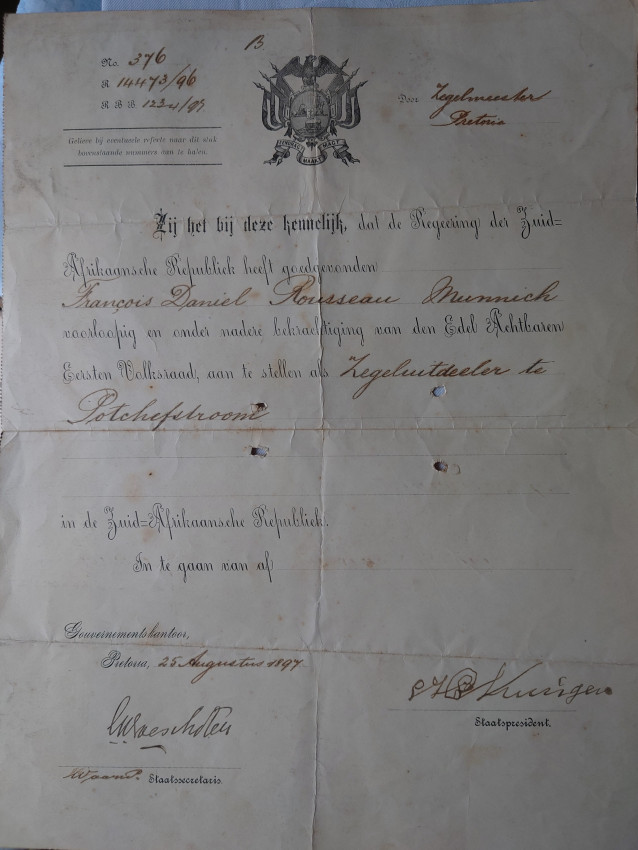 B.
No. 376
R 14473/96
R.B.B. 1234/97
Gelieve bij eventueele refertе naar dit stuk
bovenstaande nummers aan te halen.
EENDRAGT MAAKT MAGT
Door Zegelmeester
Pretoria
Zij het bij deze kennelijk, dat de Regeering der Zuid=
Afrikaansche Republiek heeft goedgevonden
François Daniel Rousseau Munnich
voorloopig en onder nadere bekrachtiging van den Edel Achtbaren
Eersten Volksraad, aan te stellen als Zegeluitdeeler te
Potchefstroom
in de Zuid=Afrikaansche Republiek.
In te gaan van af
Gouvernementskantoor,
Pretoria, 25 Augustus 1897
Staatspresident.
Waarnd. Staatssecretaris.